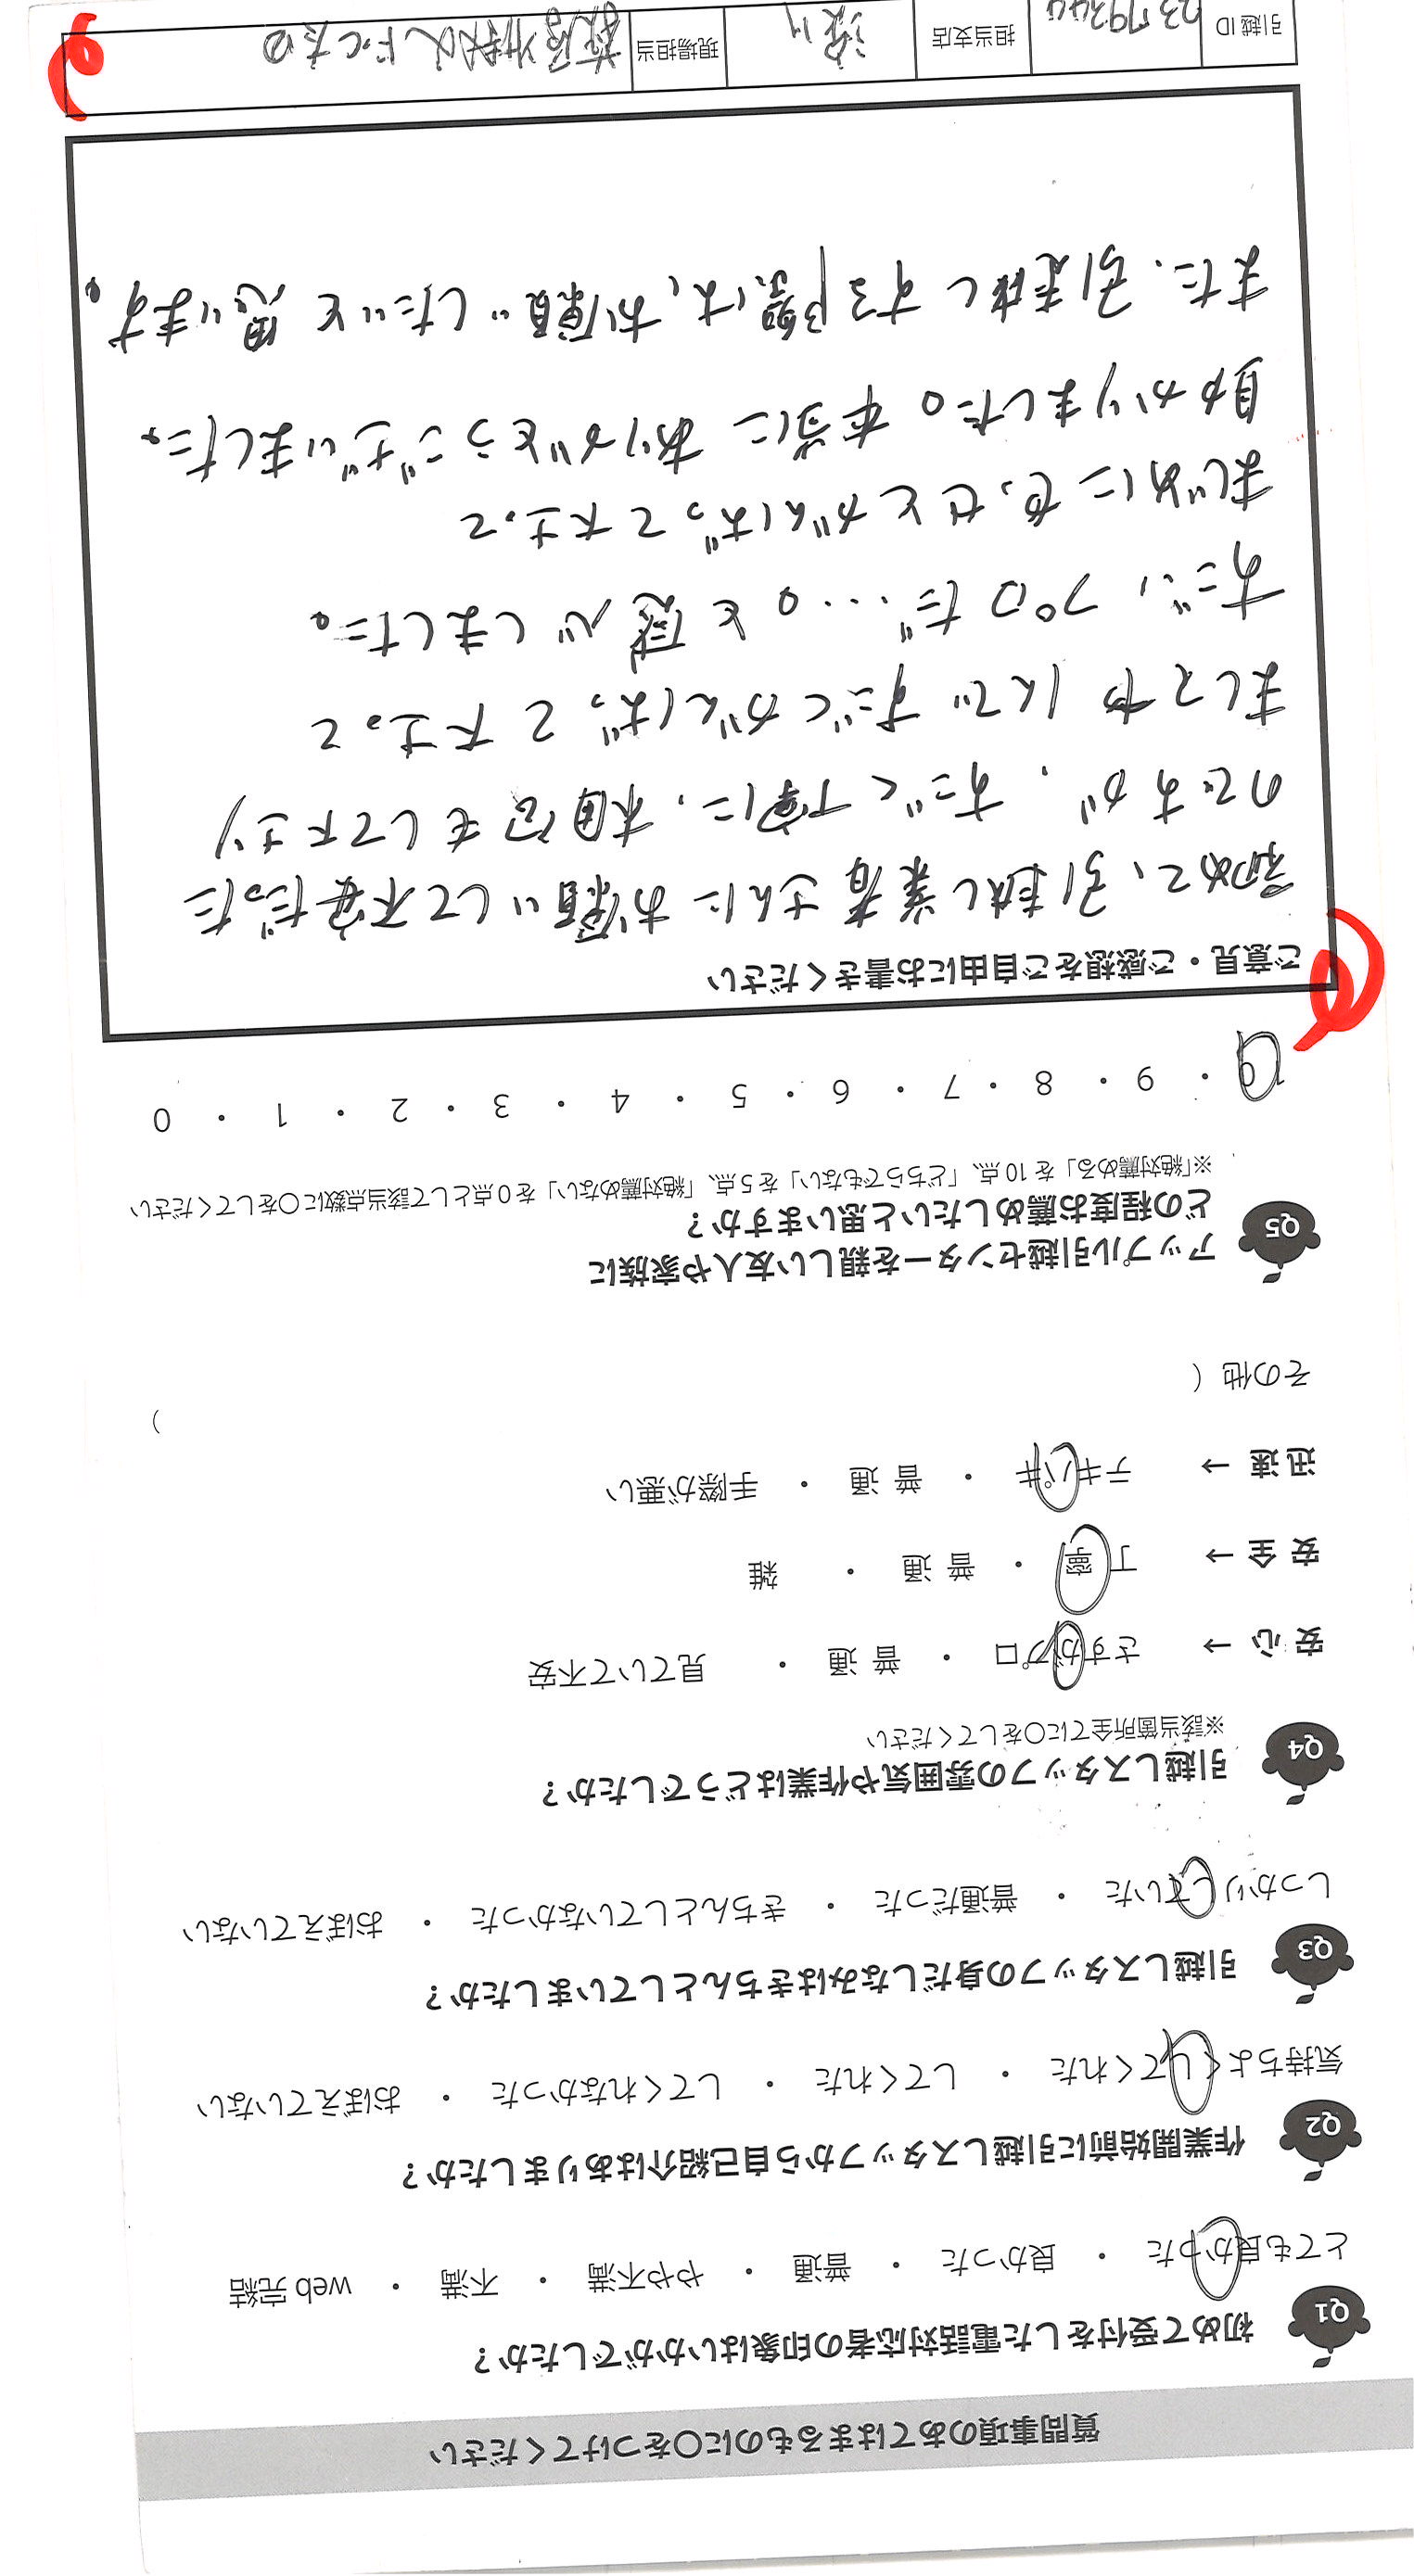 質問事項のあてはまるものに〇をつけてください
Q1 初めて受付をした電話対応者の印象はいかがでしたか？
とても良かった ・ 良かった ・ 普通 ・ やや不満 ・ 不満 ・ web 完結
Q2 作業開始前に引越しスタッフから自己紹介はありましたか？
気持ちよくしてくれた ・ してくれた ・ してくれなかった ・ おぼえていない
Q3 引越しスタッフの身だしなみはきちんとしていましたか？
しっかりしていた ・ 普通だった ・ きちんとしていなかった ・ おぼえていない
Q4 引越しスタッフの雰囲気や作業はどうでしたか？
※該当箇所全てに〇をしてください
安 心 → さすがプロ ・ 普 通 ・ 見ていて不安
安 全 → 丁 寧 ・ 普 通 ・ 雑
迅 速 → テキパキ ・ 普 通 ・ 手際が悪い
その他 ( )
Q5 アップル引越センターを親しい友人や家族に
どの程度お薦めしたいと思いますか？
※「絶対薦める」を 10 点、「どちらでもない」を 5 点、「絶対薦めない」を 0 点として該当点数に〇をしてください
10 ・ 9 ・ 8 ・ 7 ・ 6 ・ 5 ・ 4 ・ 3 ・ 2 ・ 1 ・ 0
ご意見・ご感想をご自由にお書きください
初めて、引越し業者さんにお願いして不安だった
のですが、すごく丁寧に、梱包もして下さり
ましてや 1人で すごくがんばって下さって
すごい、プロだ…。と感心しました。
まじめに せっせとがんばって下さって
助かりました。本当に ありがとうございました。
また、引越しする際は、お願いしたいと思います。
引越 ID 担当支店 現場担当